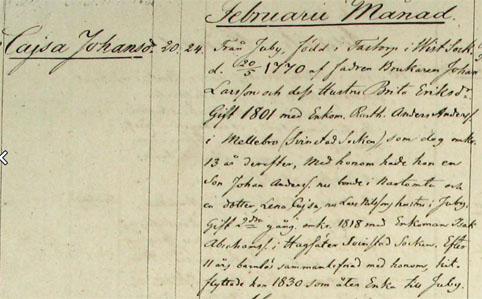 Februarii Månad.
Cajsa Johansdr 20. 24. Från Juby, född i Factorp i Wist Sock
d. 20/5 1770 af fadren Brukaren Johan
Larsson och dess Hustru Brita Eriksdr.
Gift 1801 med Enkom. Rusth. Anders Anderss.
i Mellebo (Svinstad Socken), som dog omkr.
13 år derefter, Med honom hade hon en
Son Johan Anderss. nu bonde i och
en dotter, Lena Cajsa, nu Lars hustru i Juby.
Gift 2dra gång. omkr. 1818 med Enkoman Isak
Abrahamss. i Svinstad Socken. Efter
11 års barnlös sammanlefnad med honom, hit-
flyttade hon 1830 som åter Enka till Juby.